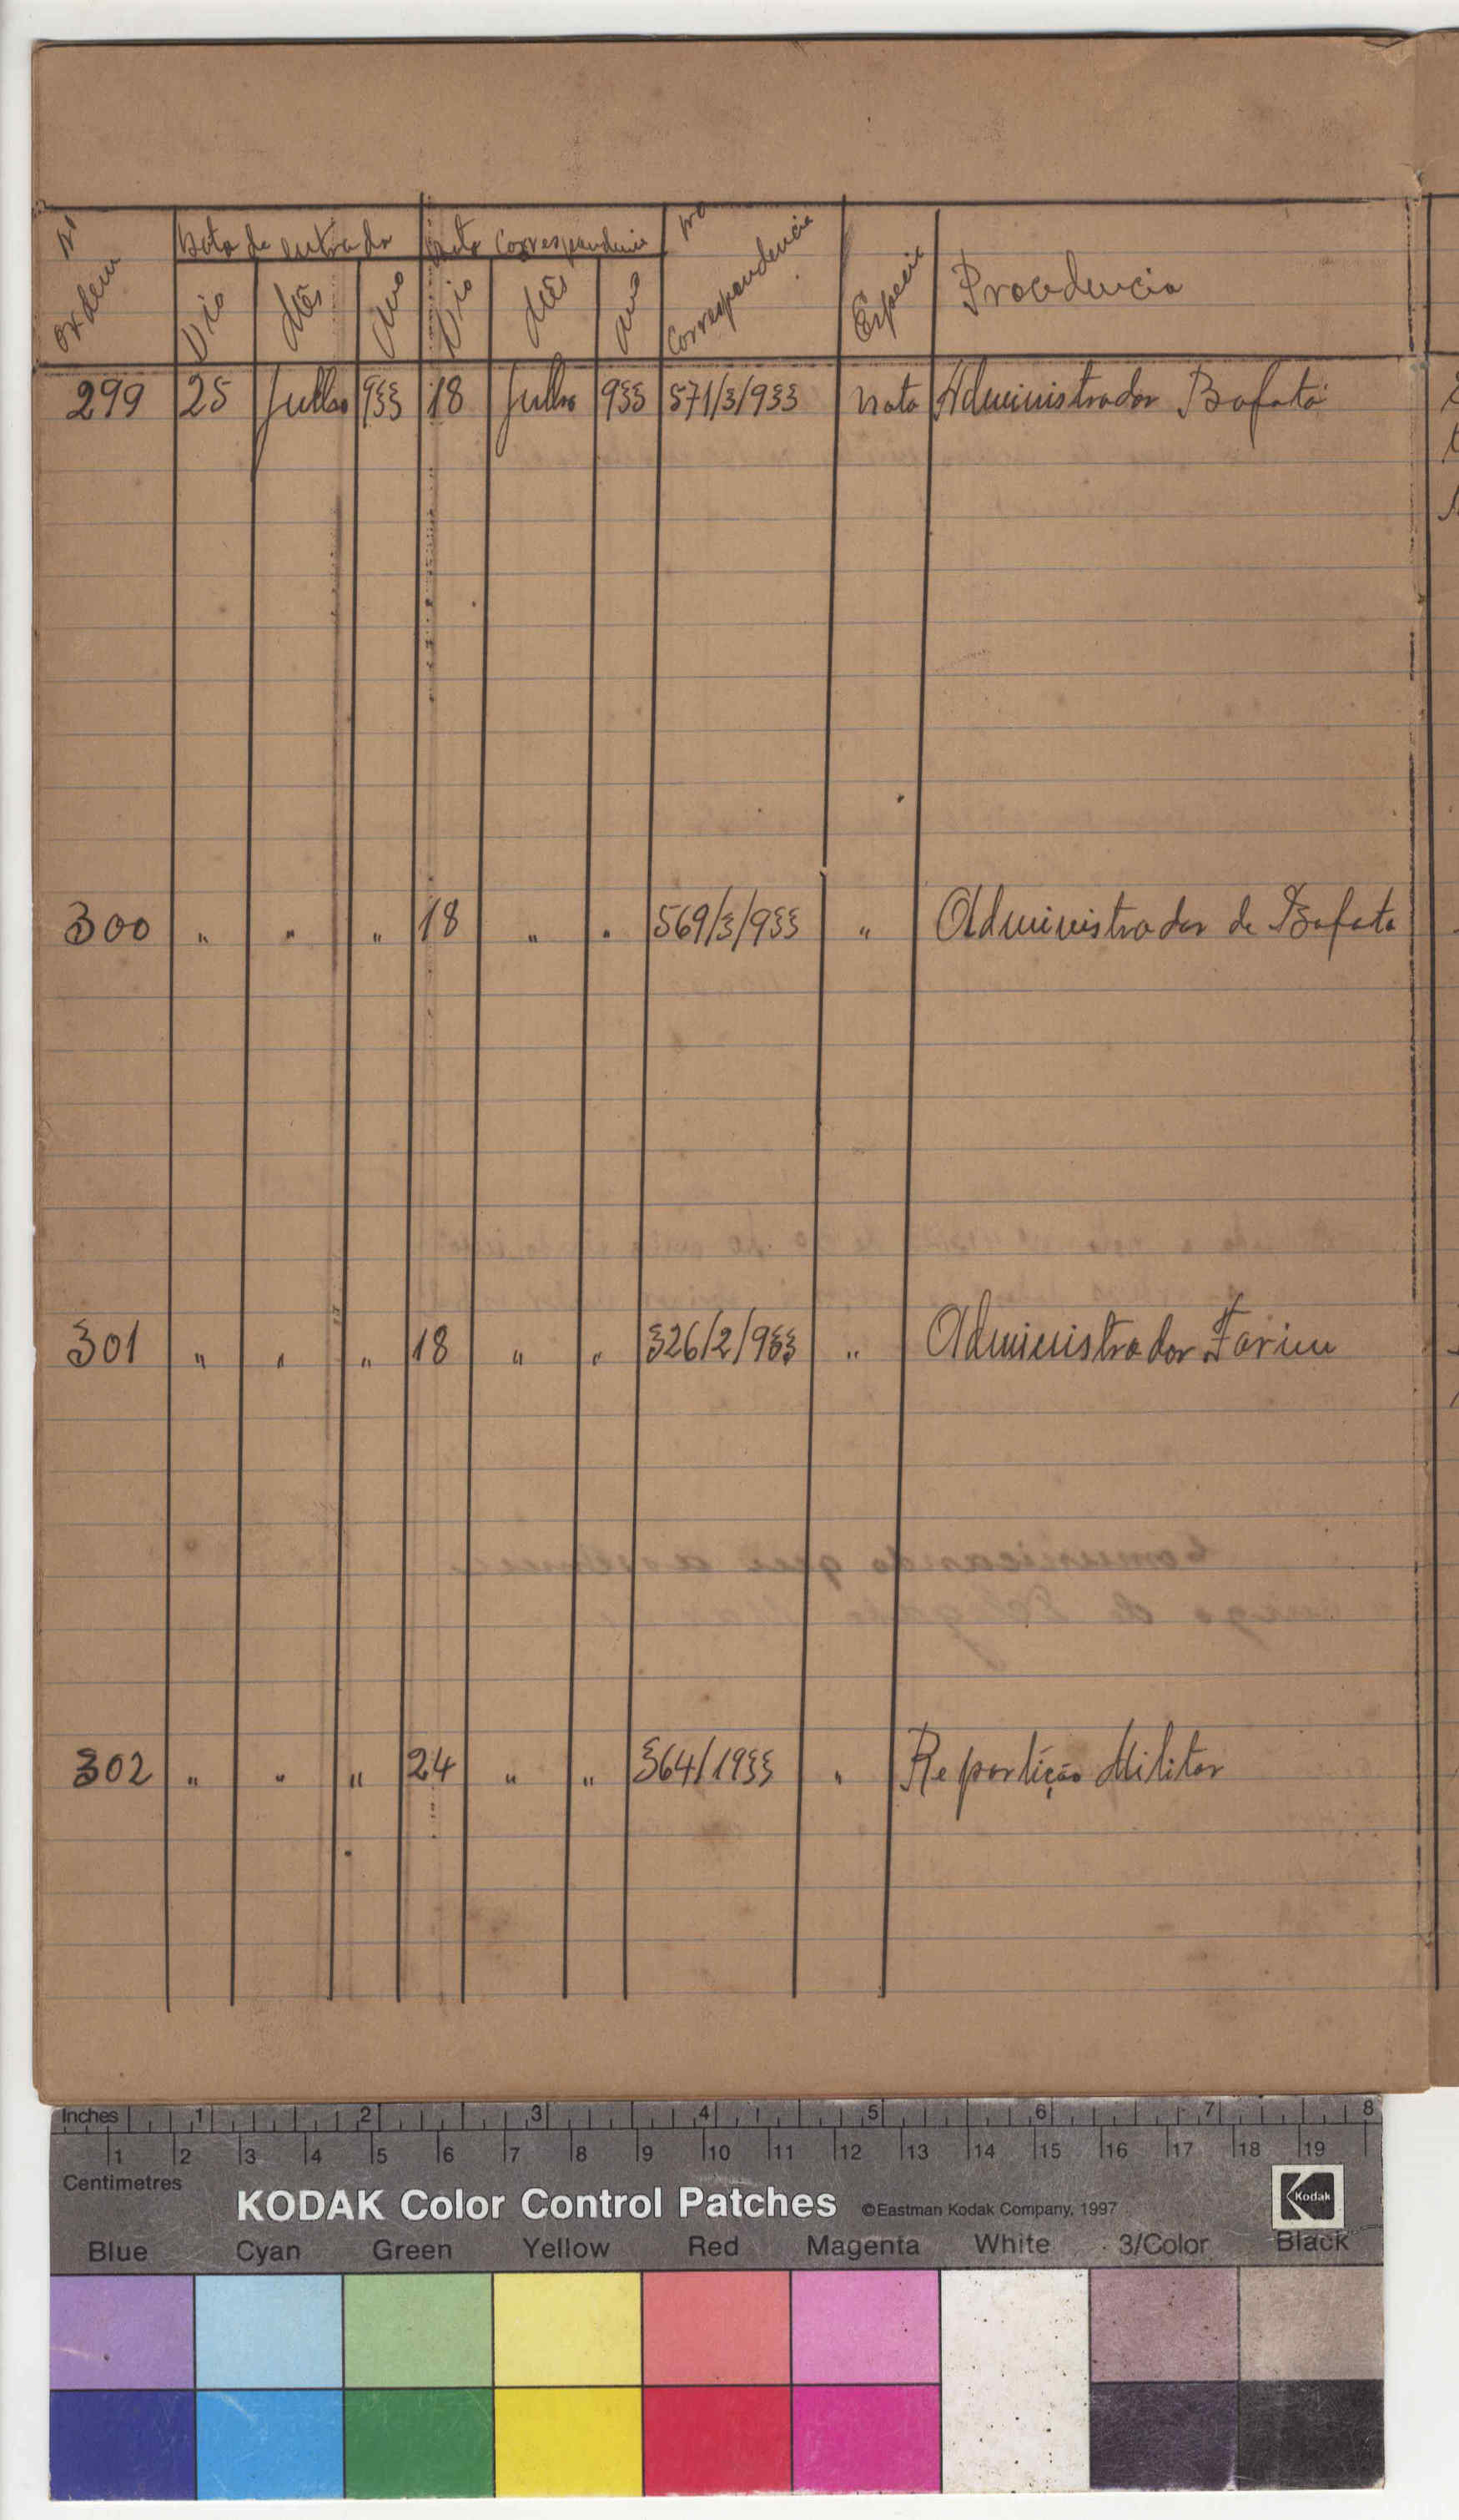 Nº ordem | Data de entrada | Data Correspondencia | Nº Correspondencia | Especie | Procedencia
Dia | Mês | Ano | Dia | Mês | Ano
299 | 25 | Julho | 933 | 18 | Julho | 933 | 571/3/933 | Nota | Administrador Bafatá
300 | " | " | " | 18 | " | " | 569/3/933 | " | Administrador de Bafata
301 | " | " | " | 18 | " | " | 326/2/933 | " | Administrador Farim
302 | " | " | " | 24 | " | " | 364/1933 | " | Repartição Militar
Inches 1 2 3 4 5 6 7 8
1 2 3 4 5 6 7 8 9 10 11 12 13 14 15 16 17 18 19
Centimetres
KODAK Color Control Patches ©Eastman Kodak Company, 1997 Kodak
Blue Cyan Green Yellow Red Magenta White 3/Color Black